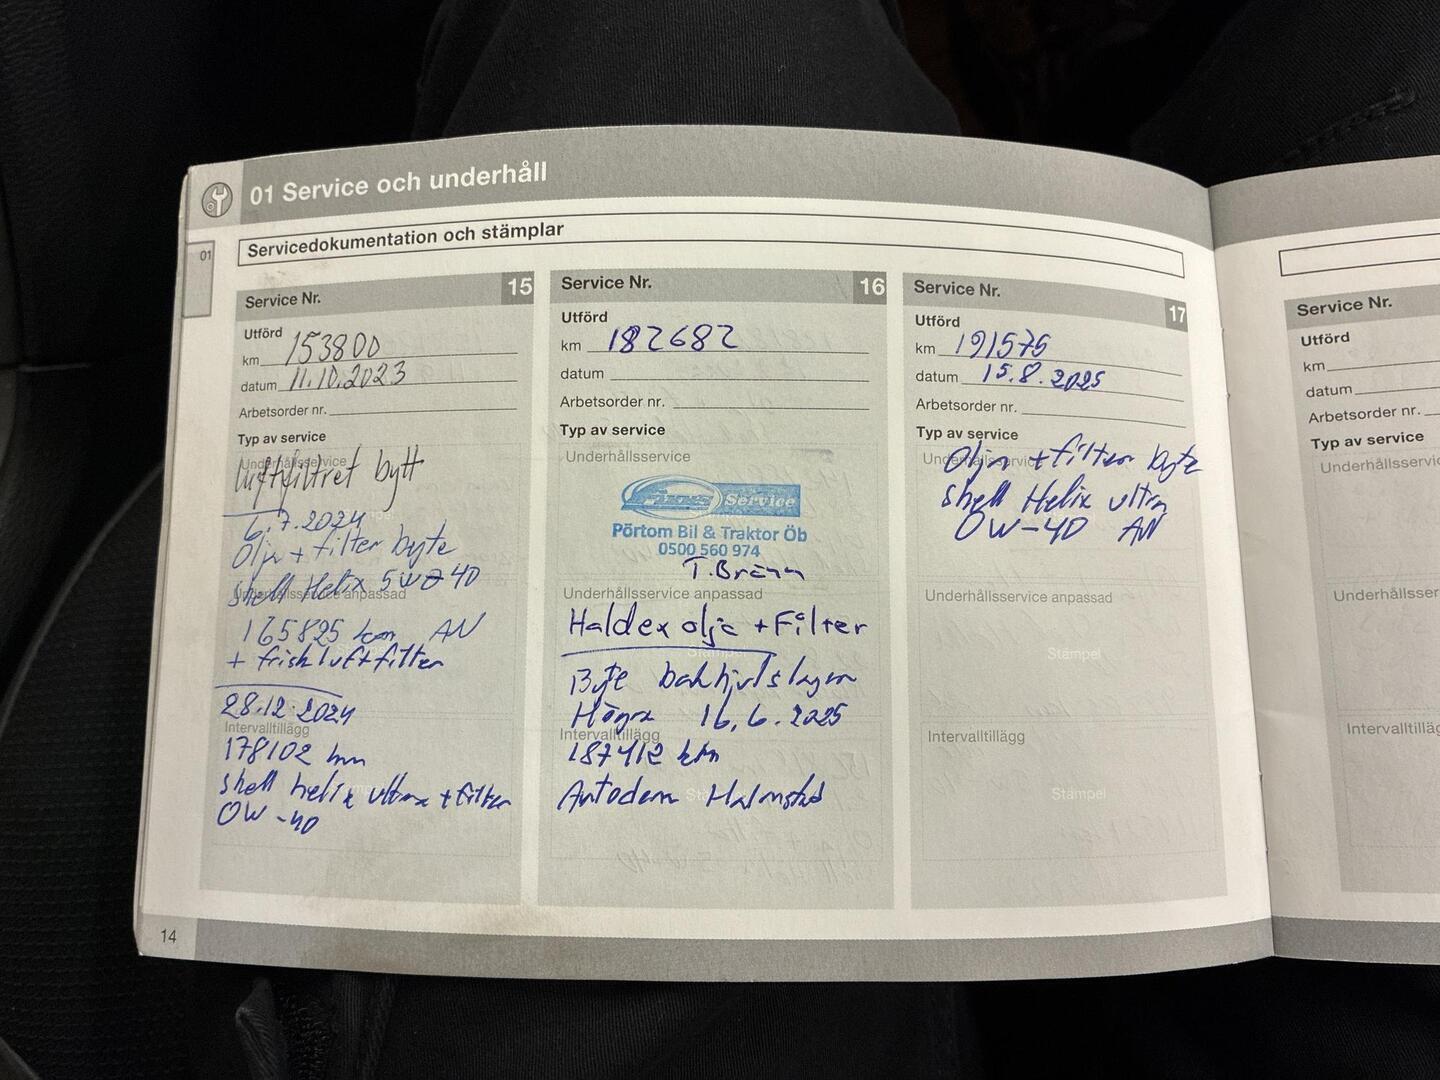 01 Service och underhåll
01
Servicedokumentation och stämplar
Service Nr. 15
Utförd
km 153800
datum 11.10.2023
Arbetsorder nr.
Typ av service
Underhållsservice
luftfiltret bytt
6.7.2024
Olja + filter byte
Shell Helix 5W-40
Underhållsservice anpassad
165825 km AN
+ friskluftfilter
28.12.2024
Intervalltillägg
178102 km
Shell helix ultra + filter
0W-40
Service Nr. 16
Utförd
km 182682
datum
Arbetsorder nr.
Typ av service
Underhållsservice
Service
Pörtom Bil & Traktor Öb
0500 560 974
Underhållsservice anpassad
Haldex olja + Filter
Stämpel
Byte bakhjulslagren
Högra 16.6.2025
Intervalltillägg
187412 km
Autodem Halmstad
Service Nr. 17
Utförd
km 191575
datum 15.8.2025
Arbetsorder nr.
Typ av service
Underhållsservice
Olja + filter byte
Shell Helix ultra
0W-40 AN
Underhållsservice anpassad
Stämpel
Intervalltillägg
Stämpel
14
Service Nr.
Utförd
km
datum
Arbetsorder nr.
Typ av service